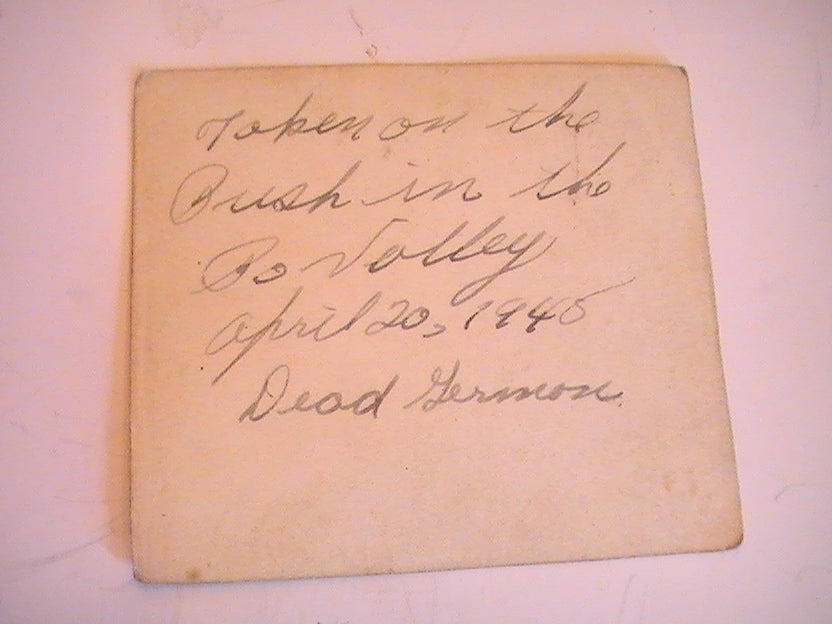 Taken on the
Push in the
Po Valley
April 20, 1945
Dead German